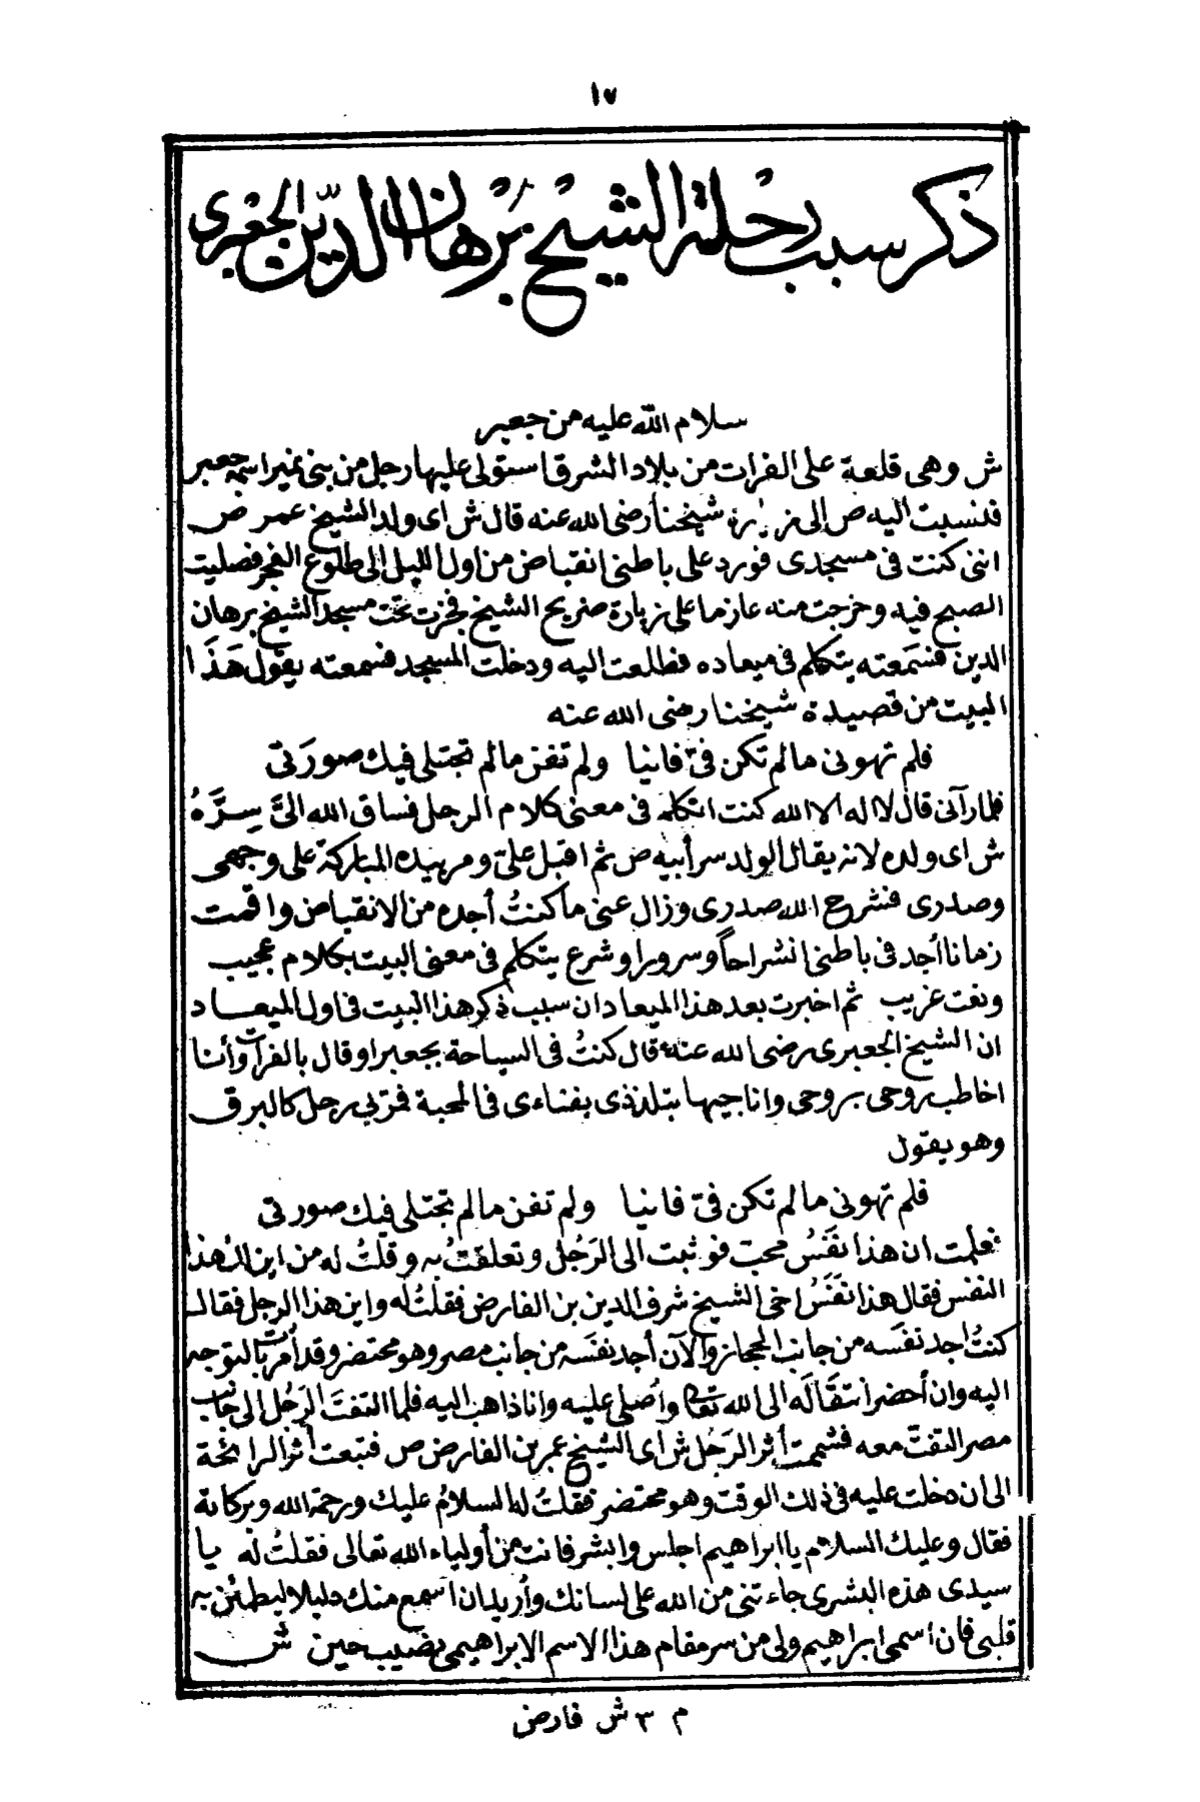 ١٧
ذكر سبب رحلة الشيخ برهان الدين الجعبري
سلام الله عليه من جعبر
ش وهى قلعة على الفرات من بلاد الشرق استولى عليها رجل من بنى نمير اسمه جعبر
فنسبت اليه ص إلى شيخنا رضى الله عنه قال ش اى ولد الشيخ عمر ص
اننى كنت فى مسجدى فورد على باطنى انقباض من اول الليل الى طلوع الفجر فصليت
الصبح فيه وخرجت منه عازما على زيارة ضريح الشيخ فجزت تحت مسجد الشيخ برهان
الدين فسَمَعته يتكلم فى ميعاده فطلعت اليه ودخلت المسجد فسمعته يقول هَذَا
البيت من قصيدة شيخنا رضى الله عنه
فلم تهونى ما لم تكن فىّ فانيا ولم تفن ما لم تجتلى فيك صورَتى
فلما رآنى قال لا اله الا الله كنت اتكلم فى معنى كلام الرجل فساق الله الىَّ سِرَّهُ
ش اى ولده لانه يقال الولد سر أبيه ص ثم اقبل علىّ ومر بيده المباركة على وجهى
وصدرى فشرح الله صدرى وزال عنى ما كنتُ أجده من الانقباض واقمت
زمانا أجد فى باطنى انشراحاً وسرورا وشرع يتكلم فى معنى البيت بكلام عجيب
ونعت غريب ثم اخبرت بعد هذا الميعاد ان سبب ذكر هذا البيت فى اول الميعاد
ان الشيخ الجعبرى رضى الله عنه قال كنتُ فى السياحة بجعبر او قال بالفرات وأنا
اخاطب روحى بروحى واناجيها بتلذذى بفناءى فى المحبة فمر بى رجل كالبرق
وهو يقول
فلم تهونى ما لم تكن فىّ فانيا ولم تفن ما لم تجتلى فيك صورتى
فعلمت ان هذا نفَسُ محب فوثبت الى الرَجُل وتعلقتُ به وقلتُ له من اين لك هذا
النفس فقال هذا نفَسُ اخى الشيخ شرف الدين بن الفارض فقلتُ له واين هذا الرجل فقال
كنتُ اجد نفسَه من جانب الحجاز والآن أجد نفسَه من جانب مصر وهو محتضر وقد أُمرت بالتوجه
اليه وان أحضر انتقاَله الى الله تعالى وأصلى عليه وانا ذاهب اليه فلما التفتَ الرَجُل الى جانب
مصر التفتّ معه فشممت أثر الرَجُل ش اى الشيخ عمر بن الفارض ص فتبعت أثر الرائحة
الى ان دخلت عليه فى ذلك الوقت وهو محتضر فقلتُ له السلامُ عليك ورحمة الله وبركاته
فقال وعليك السلام يا ابراهيم اجلس وابشر فانت من أولياء الله تعالى فقلتُ له يا
سيدى هذه البشرى جاءتنى من الله على لسانك وأريد ان اسمع منك دليلا ليطمئن به
قلبى فان اسمى ابراهيم ولى من سر مقام هذا الاسم الابراهيمى نصَيب حين ش
م ٣ ش فارض